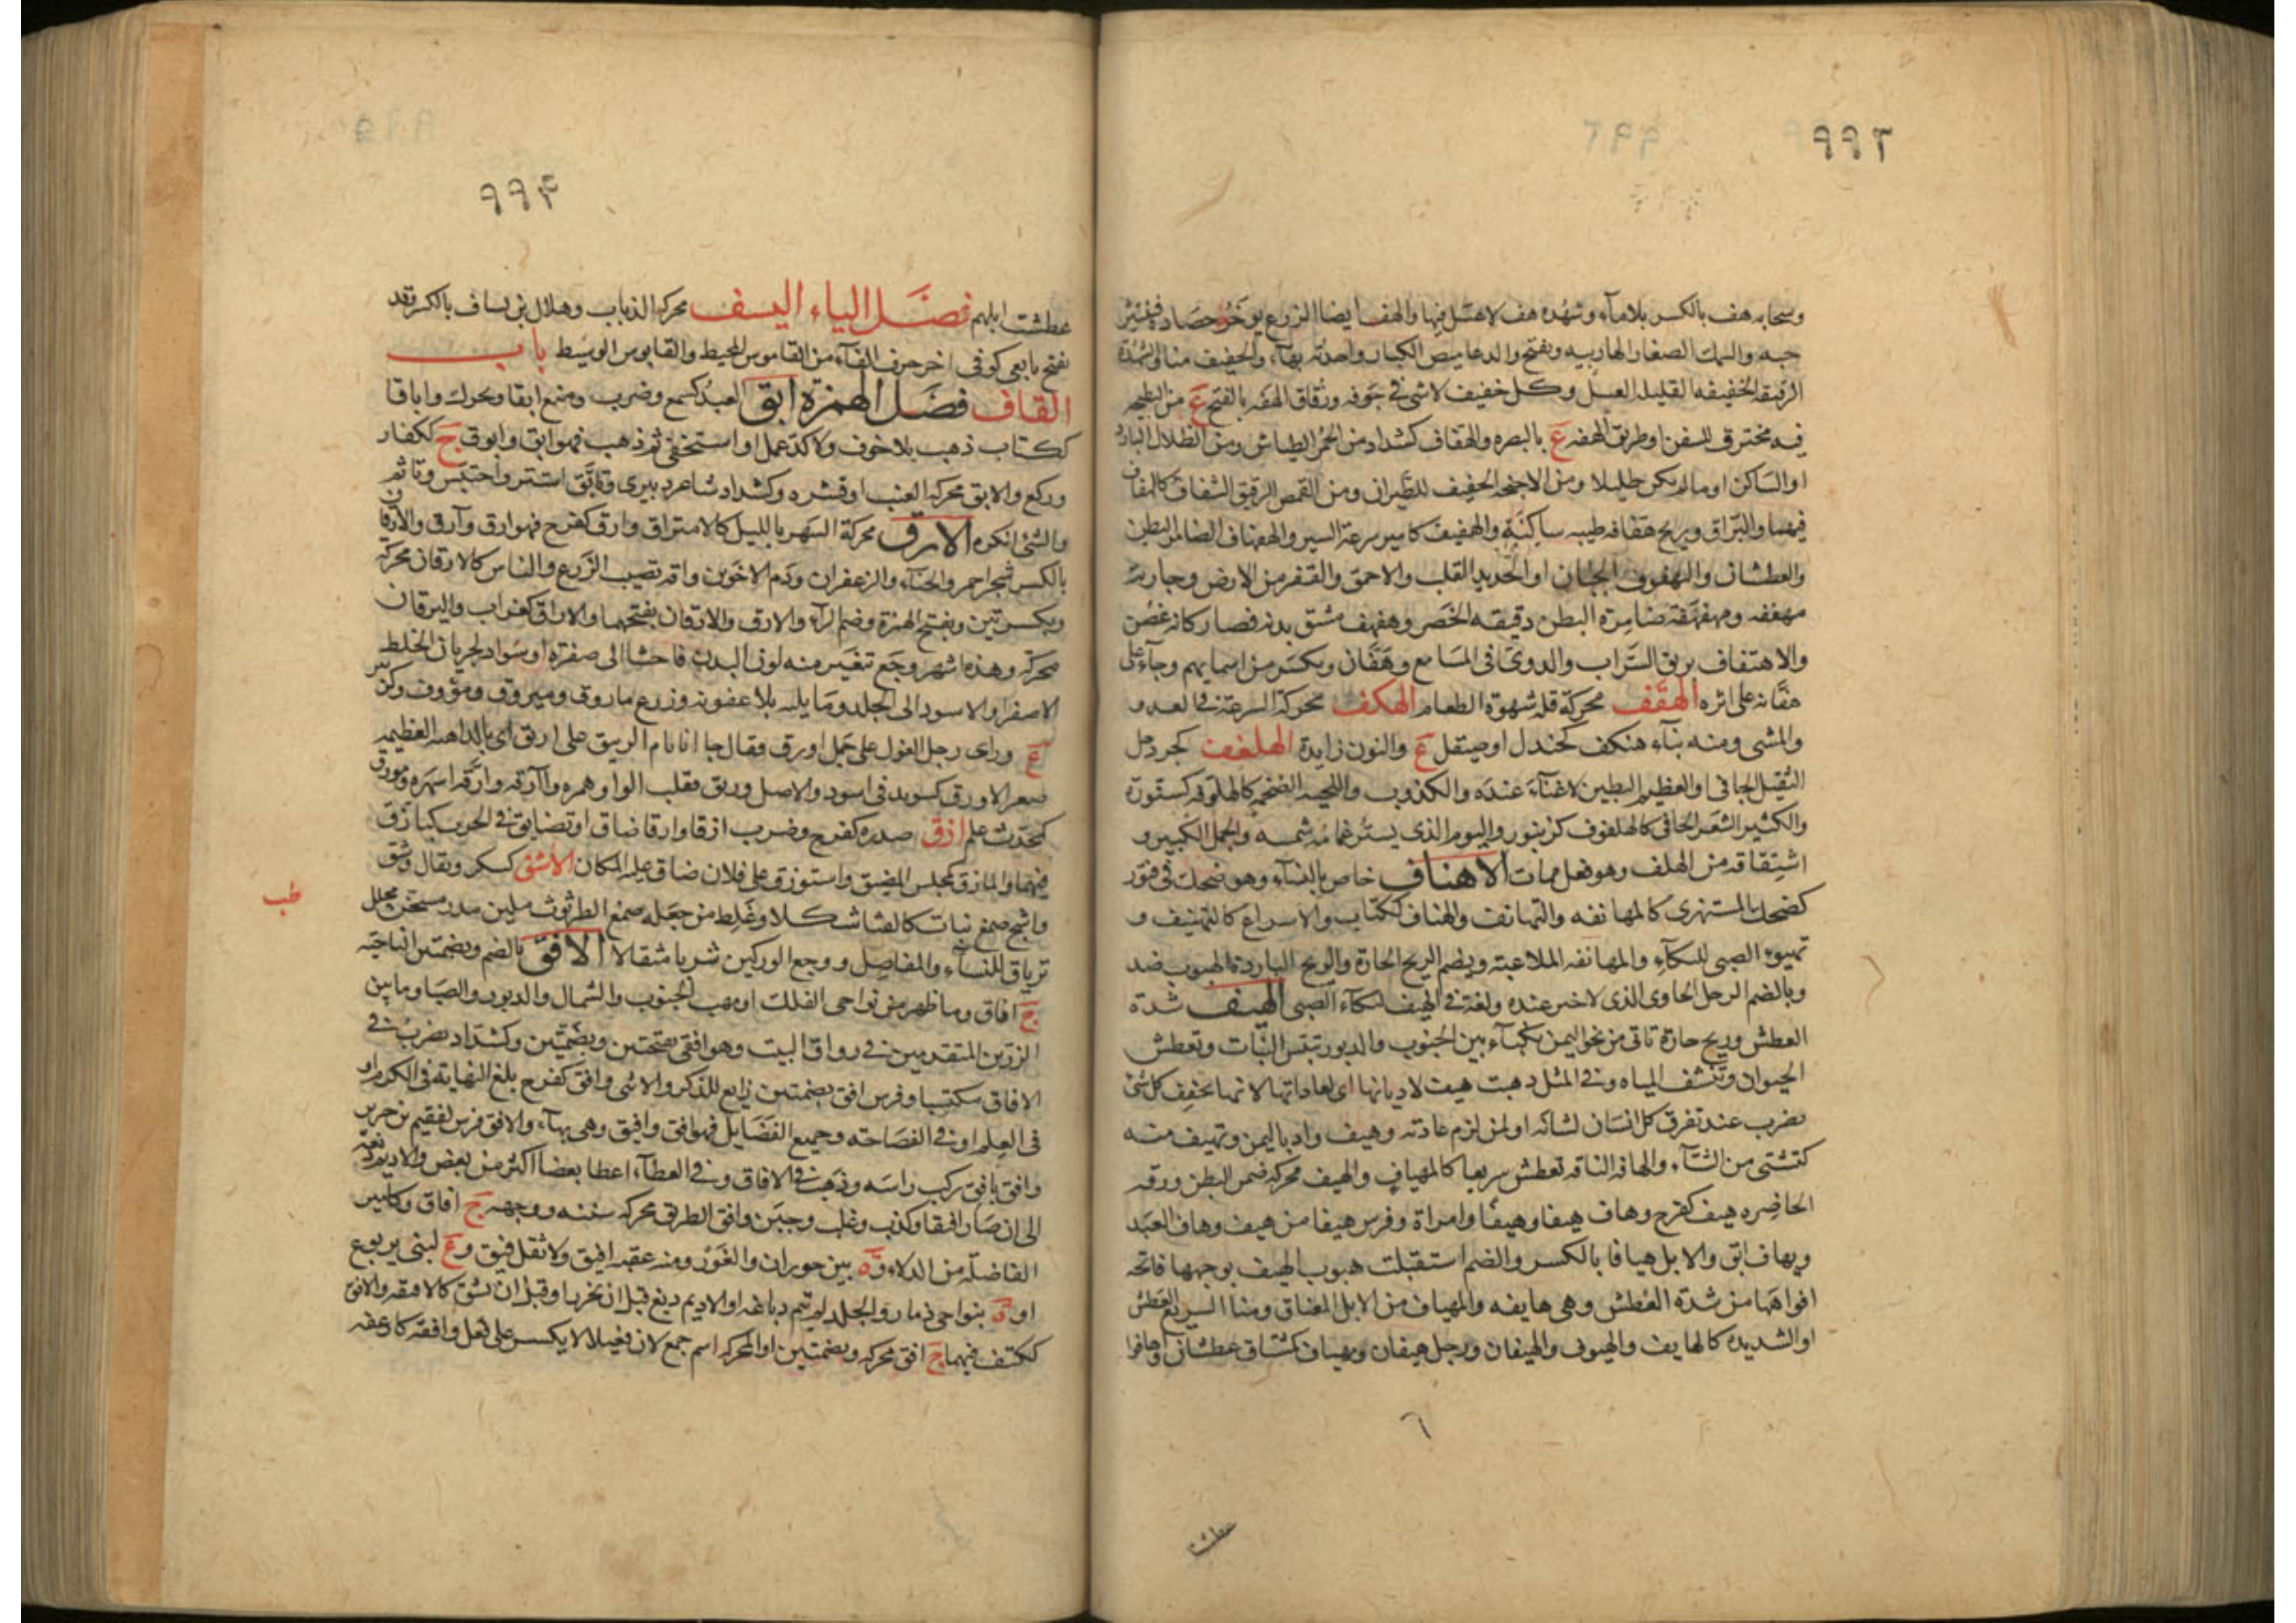 ٩٩٣
وسحابه هف بالكسر بلا مآء وشهده هف لا عسل فيها والهف ايضا الزرع يوخر حصاده فينتثر
حبه والسمك الصغار الهاربيه ويفتح والدعاميص الكبار واحدته بهآء والخفيف منا والشهدة
الرقيقه الخفيفه القليله العسل وكل خفيف لا شى فى جوفه وزقاق الهفه بالفتح ع من البطيحه
فيه مخترق للسفن او طريق الهفه ع بالبصره والهفاف كشداد من الحمر الطياش ومن الظلال البارد
او الساكن او مالم يكن ظليلا ومن الاجنحه الخفيف للطيران ومن القمص الرقيق الشفاف كالهفاف
فيهما والبراق وريح هفافه طيبه ساكنة والهفيف كامير سرعة السير والهفهاف الضامر البطن
والعطشان واليهفوف الجبان او الحديد القلب والاحمق والقفر من الارض وجاريه
مهففه ومهفهفة ضامرة البطن دقيقه الخصر وهفهف مشق بدنه فصار كانه غصن
والاهتفاف بريق السراب والدوى فى المسامع وهفان ويكسر من اسمايهم وجآء على
هفانه على اثره الهقف محركة قلة شهوة الطعام الهكف محركه السرعة فى العدو و
والمشى ومنه بنآء هنكف كجندل او صيقل ع والنون زايدة الهلغف كجردحل
الثقيل الجافى او العظيم البطين لا غنآء عنده والكذوب واللحيه الضخمه كالهلوفه كسنورة
والكثير الشعر الجافى كالهلفوف كزنبور واليوم الذى يستر غمامه شمسه والجمل الكبير و
اشتقاقه من الهلف وهو فعل ممات الاهناف خاص بالنسآء وهو ضحك فى فتور
كضحك المستهزى كالمهانفه والتهانف والهناف ككتاب والاسراع كالتهنيف و
تهيوء الصبى للبكآء والمهانفه الملاعبة ويضم الريح الحارة والريح الباردة الهبوب ضد
وبالضم الرجل الخاوى الذى لا خير عنده ولغة فى الهيف لبكآء الصبى الهيف شدة
العطش وريح حارة تاتى من نحو اليمن نكبآء بين الجنوب والدبور تيبس النبات وتعطش
الحيوان وتنشف المياه وفى المثل ذهبت هيف لاديانها اى لعاداتها لانها تجفف كل شى
يضرب عند تفرق كل انسان لشانه او لمن لزم عادته وهيف واد باليمن وتهيف منه
كتشتى من الشتآء والهافه الناقه تعطش سريعا كالمهياف والهيف محركه ضمر البطن ورقه
الخاصره هيف كفرح وهاف هيفا وهيفا وامراة وفرس هيفا من هيف وهاف العبد
ويهاف ابق والابل هيافا بالكسر والضم استقبلت هبوب الهيف بوجهها فاتحه
افواهها من شدة العطش وهى هايفه والمهياف من الابل المعناق ومنا السريع العطش
او الشديده كالهايف والهيوف والهيفان ورجل هيفان ومهياف كمشتاق عطشان واهافوا
عطشت
٩٩٤
عطشت ابلهم فصل الياء اليسف محركه الذباب وهلال بن يساف بالكسر وقد
يفتح تابعى كوفى اخر حرف الفآء من القاموس المحيط والقابوس الوسيط باب
القاف فصل الهمزة ابق العبد كسمع وضرب ومنع ابقا ويحرك واباقا
ككتاب ذهب بلا خوف ولا كد عمل او استخفى ثم ذهب فهو ابق وابوق ج ككفار
وركع والابق محركه القنب او قشره وكشداد شاعر دبيرى وتابق استتر واحتبس وتاثم
والشى انكره الارق محركة السهر بالليل كالايتراق وارق كفرح فهو ارق وآرق والارقان
بالكسر شجر احمر والحنآء والزعفران ودم الاخوين وافه تصيب الزرع والناس كالارقان محركة
وبكسرتين وبفتح الهمزة وضم الرآء والارق والارقان بفتحهما والاراق كغراب واليرقان
محركة وهذه اشهر وجع تتغير منه لون البدن فاحشا الى صفرة او سواد لجريان الخلط
الاصفر او الاسود الى الجلد وما يليه بلا عفونه وزرع ماروق وميروق وموؤوف وكزبير
ع وراى رجل الغول على جمل اورق فقال جاانا بام الربيق على اريق اى بالداهيه العظيمه
صغر الاورق كسويد فى اسود والاصل وريق فقلب الواو همره وآارقه وارقه اسهره ومورق
كمحدث علم ازق صدره كفرح وضرب ازقا وازقا ضاق او تضايق فى الحرب كتازق
فيهما والمازق كمجلس المضيق واستوزق على فلان ضاق عليه المكان الاشق كسكر ويقال وشق
واشج صمغ نبات كالقثا شكلا وغلط من جعله صمغ الطرثوث ملين مدر مسخن محلل
طب
ترياق للنساء والمفاصل ووجع الوركين شربا مثقالا الافق بالضم وبضمتين الناحيه
ج افاق وما ظهر من نواحى الفلك او مهب الجنوب والشمال والدبور والصبا وما بين
الزرين المتقدمين فى رواق البيت وهو افقى بفتحتين وبضمتين وكشداد يضرب فى
الافاق مكتسبا وفرس افق بضمتين رايع للذكر والانثى وافق كفرح بلغ النهاية فى الكرم او
فى العلم او فى الفصاحه وجميع الفضايل فهو افق وافيق وهى بهآء والافق فرس لفقيم بن جرير
وافق يافق ركب راسه وذهب فى الافاق وفى العطآء اعطا بعضا اكثر من بعض والاديم دبغه
الى ان صار افيقا وكذب وغلب وختن وافق الطريق محركه سننه ووجهه ج افاق وكامير
الفاضله من الدلاء وة بين حوران والغور ومنه عقبه افيق ولا تقل فيق وع لبنى يربوع
او ة بنواحى ذمار والجلد لم تتم دباغه او الاديم دبغ قبل ان يخرز او قبل ان يشق كالافقه والافق
ككتف فيهما ج افق محركه وبضمتين او المحركه اسم جمع لان فعيلا لا يكسر على فعل وافقه كارغفه